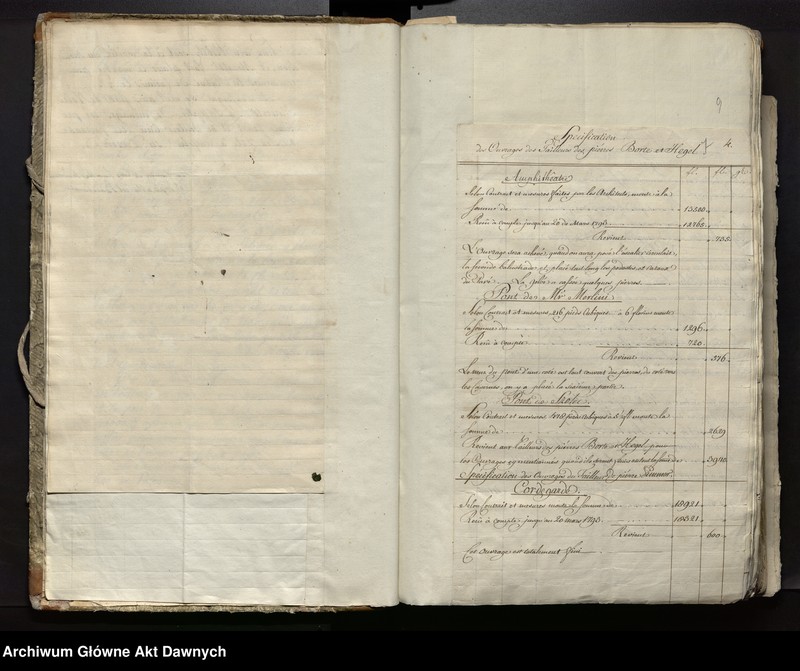 9
Specification
des Ouvrages des Tailleurs des pierres Borte et Hegel 4.
fl. fl. gr.
Amphithéatre
Selon Contract et mesures faites par les Architects, monte à la
somme de 13500.
Recu à compte jusqu'au 20 de Mars 1793 12765.
Revient 735.
L'Ouvrage sera achevé, quand on aura posé
la seconde balustrade et placé tout long les
du Pavé. La gelée a cassée quelques pierres.
Pont de Mr Merlini
Selon Contract et mesures 216 pieds Cubiques à 6 florins monte
la somme de 1296.
Recu à compte 720.
Revient 576.
Le mur du pont d'une coté est tout couvert des pierres, du coté vers
les Casernes, on y a placé la sixieme partie.
Pont de
Selon Contract et mesures pieds Cubiques à fl monte la
somme de 2609
Revient aux Tailleurs des pierres Borte et Hegel pour
les Ouvrages la somme de 3920.
Specification des Ouvrages du Tailleur de pierres
Cordegarde.
Selon Contract et mesures monte la somme de 10921.
Recu à compte jusqu'au 20 Mars 1793 10321.
Revient 600.
Cet Ouvrage est totalement fini
Archiwum Główne Akt Dawnych